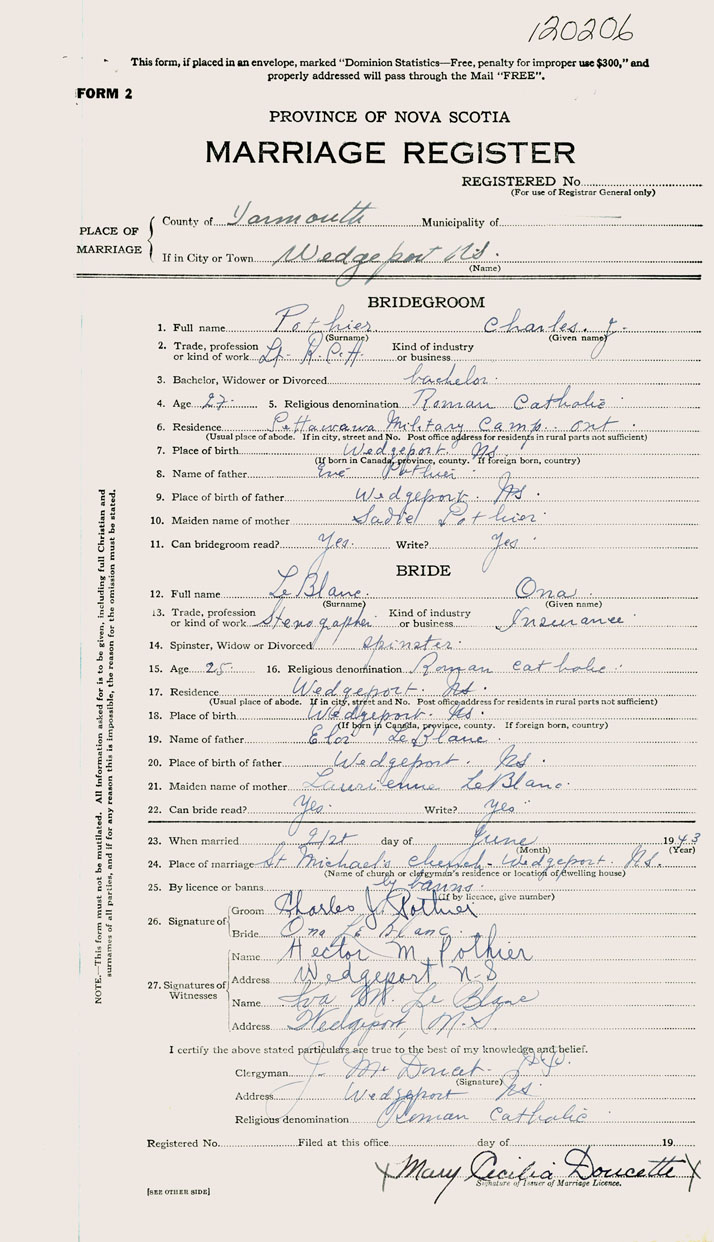 120206
This form, if placed in an envelope, marked "Dominion Statistics—Free, penalty for improper use $300," and
properly addressed will pass through the Mail "FREE".
FORM 2
PROVINCE OF NOVA SCOTIA
MARRIAGE REGISTER
REGISTERED No.
(For use of Registrar General only)
PLACE OF MARRIAGE
County of Yarmouth Municipality of
If in City or Town Wedgeport NS.
(Name)
BRIDEGROOM
1. Full name Pothier Charles. J.
(Surname) (Given name)
2. Trade, profession or kind of work Lt- R.C.A. Kind of industry or business
3. Bachelor, Widower or Divorced bachelor.
4. Age 27. 5. Religious denomination Roman Catholic.
6. Residence Pettawawa Military Camp. ont.
(Usual place of abode. If in city, street and No. Post office address for residents in rural parts not sufficient)
7. Place of birth Wedgeport. NS.
(If born in Canada, province, county. If foreign born, country)
8. Name of father Pothier.
9. Place of birth of father Wedgeport. NS.
10. Maiden name of mother Sadie Pothier.
11. Can bridegroom read? Yes. Write? Yes.
BRIDE
12. Full name LeBlanc. Ona.
(Surname) (Given name)
13. Trade, profession or kind of work Stenographer Kind of industry or business Insurance.
14. Spinster, Widow or Divorced spinster.
15. Age 25. 16. Religious denomination Roman catholic.
17. Residence Wedgeport. NS.
(Usual place of abode. If in city, street and No. Post office address for residents in rural parts not sufficient)
18. Place of birth Wedgeport. NS.
(If born in Canada, province, county. If foreign born, country)
19. Name of father LeBlanc.
20. Place of birth of father Wedgeport. NS.
21. Maiden name of mother LeBlanc.
22. Can bride read? Yes. Write? Yes.
23. When married 21st day of June 1943
(Month) (Year)
24. Place of marriage St Michael's church - Wedgeport. NS.
(Name of church or clergyman's residence or location of dwelling house)
25. By licence or banns by banns.
(If by licence, give number)
26. Signature of
Groom Charles J. Pothier
Bride Ona Le Blanc.
27. Signatures of Witnesses
Name Hector M. Pothier
Address Wedgeport N-S
Name Iva M. Le Blanc
Address Wedgeport, N.S.
I certify the above stated particulars are true to the best of my knowledge and belief.
Clergyman Doucet.
(Signature)
Address Wedgeport NS.
Religious denomination Roman Catholic.
Registered No. Filed at this office day of 19
X Mary Cecilia Doucette X
Signature of Issuer of Marriage Licence.
[SEE OTHER SIDE]
NOTE.—This form must not be mutilated. All Information asked for is to be given, including full Christian and
surnames of all parties, and if for any reason this is impossible, the reason for the omission must be stated.